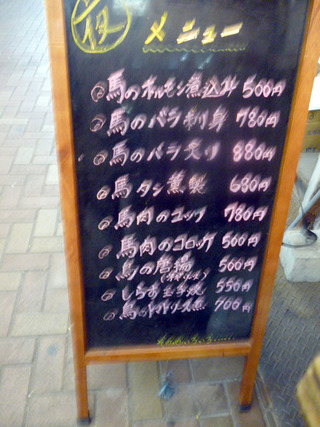 夜 メニュー
馬のホルモン煮込み 500円
馬のバラ刺身 780円
馬のバラ炙り 880円
馬タン薫製 680円
馬肉のユッケ 780円
馬肉のコロッケ 500円
馬の唐揚 500円
しらす玉子焼 550円
馬のトマトソース煮 700円